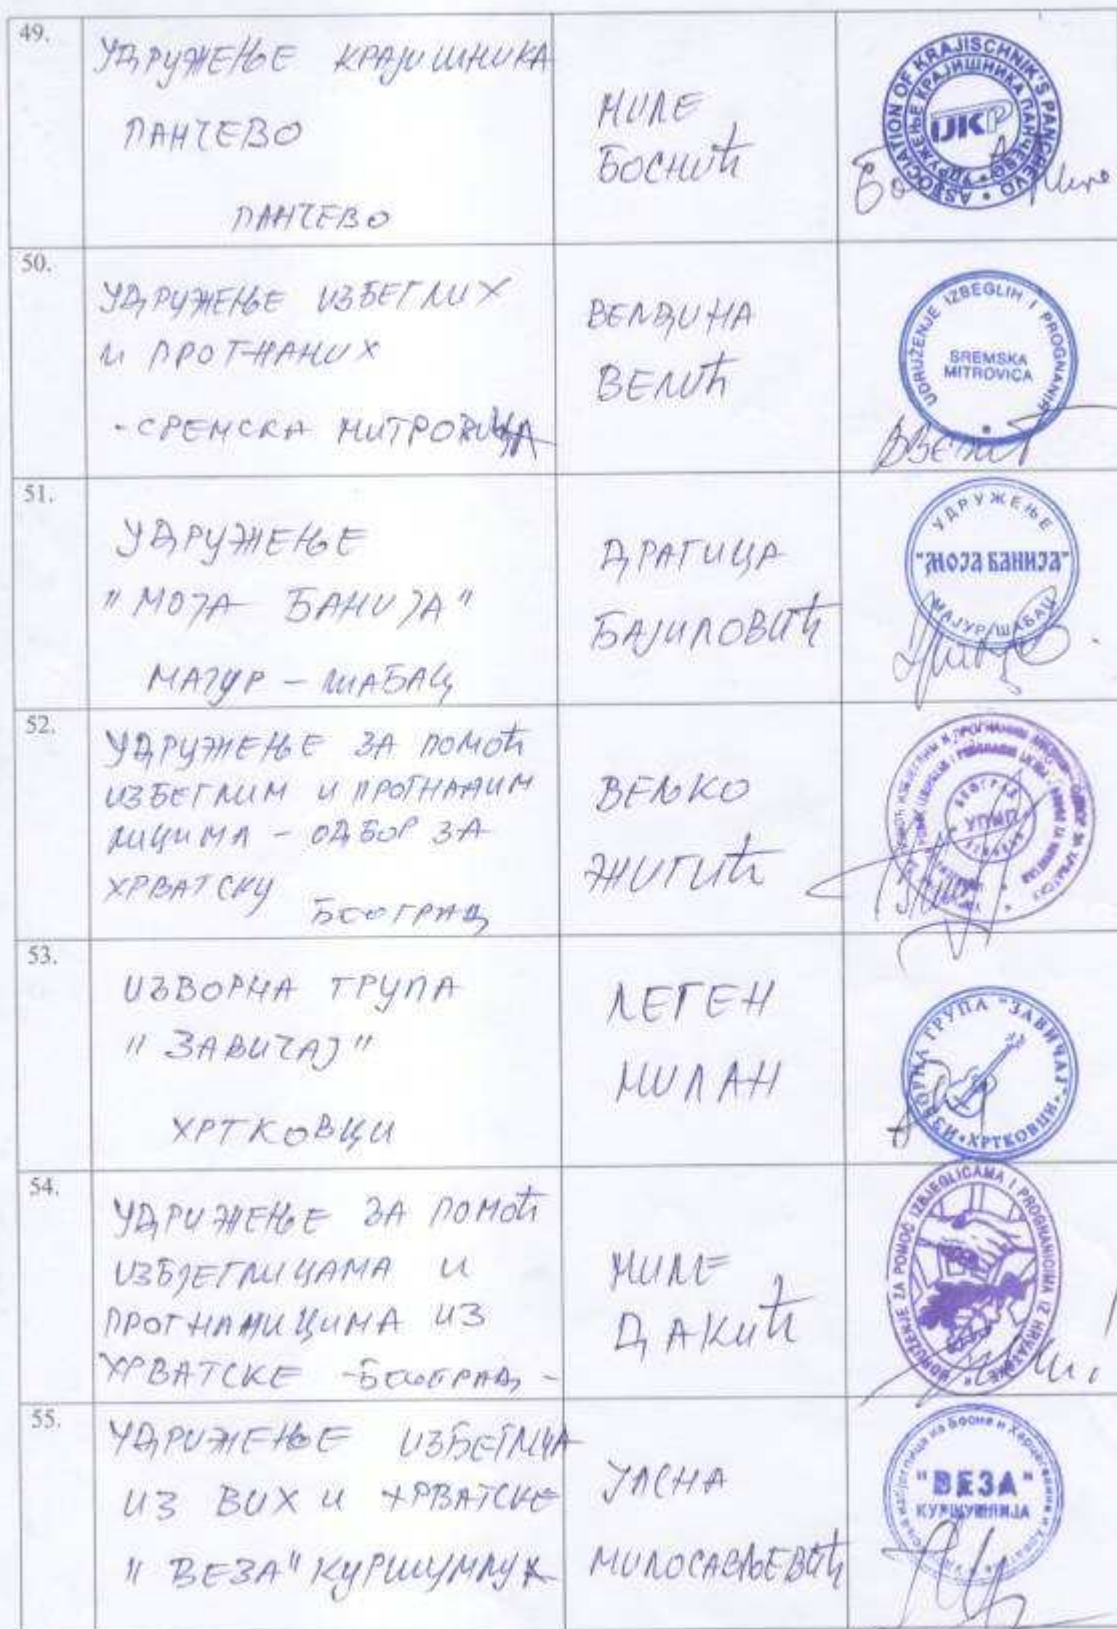 49.
УДРУЖЕЊЕ КРАЈИШНИКА
ПАНЧЕВО
ПАНЧЕВО
МИЛЕ
БОСНИЋ
ASSOCIATION OF KRAJISCHNIK'S PANCHEVO
УДРУЖЕЊЕ КРАЈИШНИКА ПАНЧЕВО
UKP
50.
УДРУЖЕЊЕ ИЗБЕГЛИХ
И ПРОГНАНИХ
- СРЕМСКА МИТРОВИЦА
ВЕЛИЋ
UDRUŽENJE IZBEGLIH I PROGNANIH
SREMSKA
MITROVICA
51.
УДРУЖЕЊЕ
"МОЈА БАНИЈА"
МАЈУР - ШАБАЦ
ДРАГИЦА
БАЈИЛОВИЋ
УДРУЖЕЊЕ
"МОЈА БАНИЈА"
МАЈУР/ШАБАЦ
52.
УДРУЖЕЊЕ ЗА ПОМОЋ
ИЗБЕГЛИМ И ПРОГНАНИМ
ЛИЦИМА - ОДБОР ЗА
ХРВАТСКУ
БЕОГРАД
ВЕЉКО
ЖИГИЋ
53.
ИЗВОРНА ГРУПА
"ЗАВИЧАЈ"
ХРТКОВЦИ
ЛЕГЕН
МИЛАН
ИЗВОРНА ГРУПА "ЗАВИЧАЈ"
ХРТКОВЦИ
54.
УДРУЖЕЊЕ ЗА ПОМОЋ
ИЗБЈЕГЛИЦАМА И
ПРОГНАНИЦИМА ИЗ
ХРВАТСКЕ - БЕОГРАД -
МИЛЕ
ДАКИЋ
UDRUŽENJE ZA POMOĆ IZBJEGLICAMA I PROGNANICIMA IZ HRVATSKE
55.
УДРУЖЕЊЕ ИЗБЕГЛИЦА
ИЗ БИХ И ХРВАТСКЕ
"ВЕЗА" КУРШУМЛИЈА
МИЛОСАВЉЕВИЋ
"ВЕЗА"
КУРШУМЛИЈА